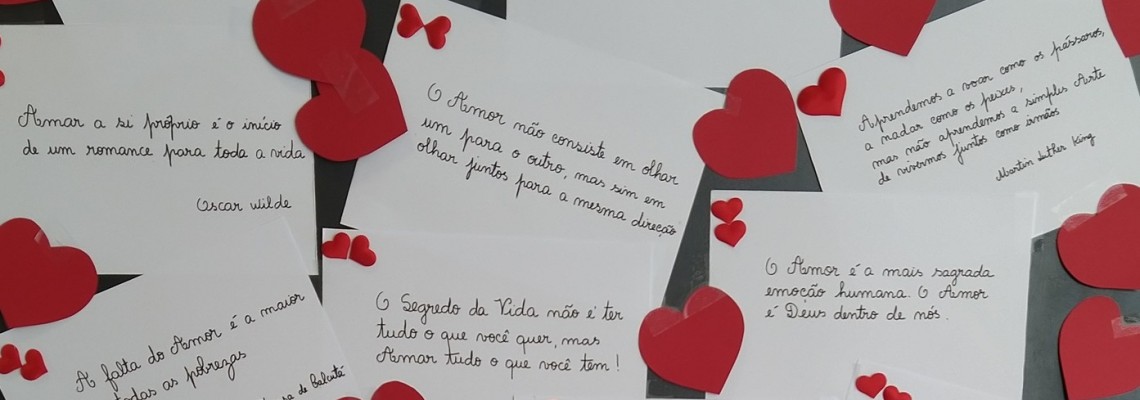 Amar a si próprio é o início
de um romance para toda a vida
Oscar Wilde
O Amor não consiste em olhar
um para o outro, mas sim em
olhar juntos para a mesma direção
Aprendemos a voar como os pássaros,
a nadar como os peixes,
mas não aprendemos a simples Arte
de vivermos juntos como irmãos
Martin Luther King
A falta do Amor é a maior
todas as pobrezas
de Calcutá
O Segredo da Vida não é ter
tudo o que você quer, mas
Amar tudo o que você tem!
O Amor é a mais sagrada
emoção humana. O Amor
é Deus dentro de nós.